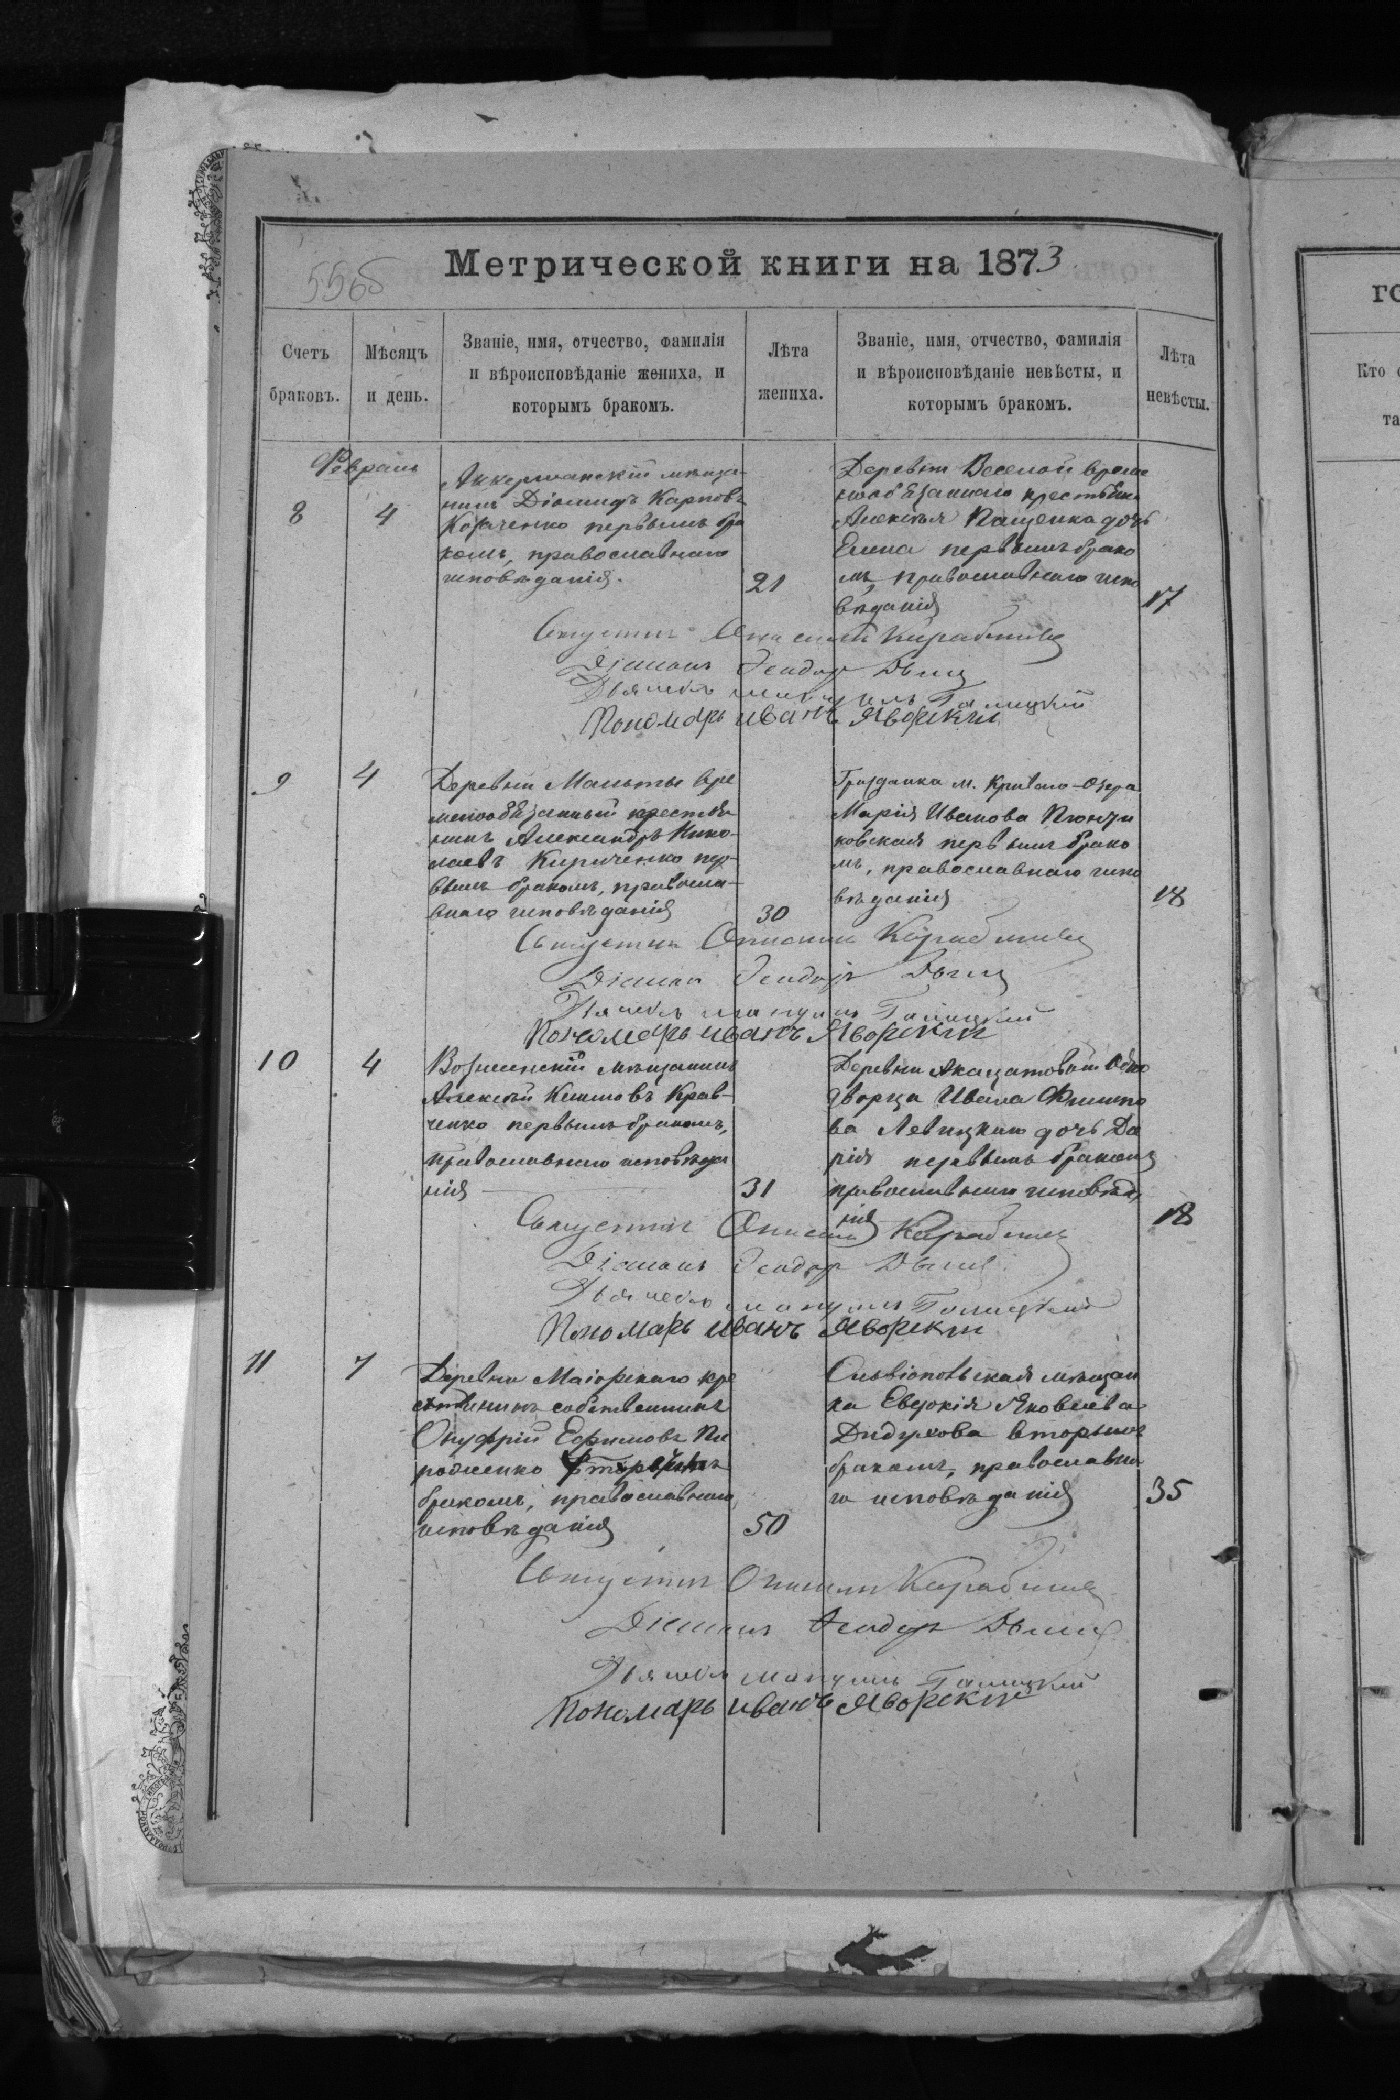 Метрической книги на 1873
556
Счетъ браковъ.
Мѣсяцъ и день.
Званіе, имя, отчество, фамилія и вѣроисповѣданіе жениха, и которымъ бракомъ.
Лѣта жениха.
Званіе, имя, отчество, фамилія и вѣроисповѣданіе невѣсты, и которымъ бракомъ.
Лѣта невѣсты.
Февраль
8
4
Аккерманскій мѣща-
нинъ Діомидъ Карповъ
Козаченко первымъ бра
комъ, православнаго
исповѣданія.
21
Деревни Веселой време
ннообязаннаго крестьянина
Алексѣя Пащенка дочь
Елена первымъ брако
мъ, православнаго испо
вѣданія
17
Священникъ Онисимъ
Діаконъ Ѳеодоръ
Дьячекъ Мануилъ Галицкій
Пономарь Иванъ Яворскій
9
4
Деревни Мальты вре
меннообязанный крестья
нинъ Александръ Нико-
лаевъ Кириченко пер-
вымъ бракомъ, правосла-
внаго исповѣданія
30
Гражданка м. Криваго-Озера
Марія Иванова
ковская первымъ брако
мъ, православнаго испо
вѣданія
18
Священникъ Онисимъ
Діаконъ Ѳеодоръ
Дьячекъ Мануилъ Галицкій
Пономарь Иванъ Яворскій
10
4
Вознесенскій мѣщанинъ
Алексѣй Климовъ Крав-
ченко первымъ бракомъ,
православнаго исповѣда
нія
31
Деревни Акацатовой Одно
дворца Ивана Филипо
ва Левицкаго дочь Да
рія первымъ бракомъ
православнаго исповѣда
нія
18
Священникъ Онисимъ
Діаконъ Ѳеодоръ
Дьячекъ Мануилъ Галицкій
Пономарь Иванъ Яворскій
11
7
Деревни Маіорскаго кре
стьянинъ собственникъ
Онуфрій Ефимовъ Пи
роженко вторымъ
бракомъ, православнаго
исповѣданія
50
Ольвіопольская мѣщан
ка Евдокія Яковлева
Дидукова вторымъ
бракомъ, православна
го исповѣданія
35
Священникъ Онисимъ
Діаконъ Ѳеодоръ
Дьячекъ Мануилъ Галицкій
Пономарь Иванъ Яворскій
го
Кто
та